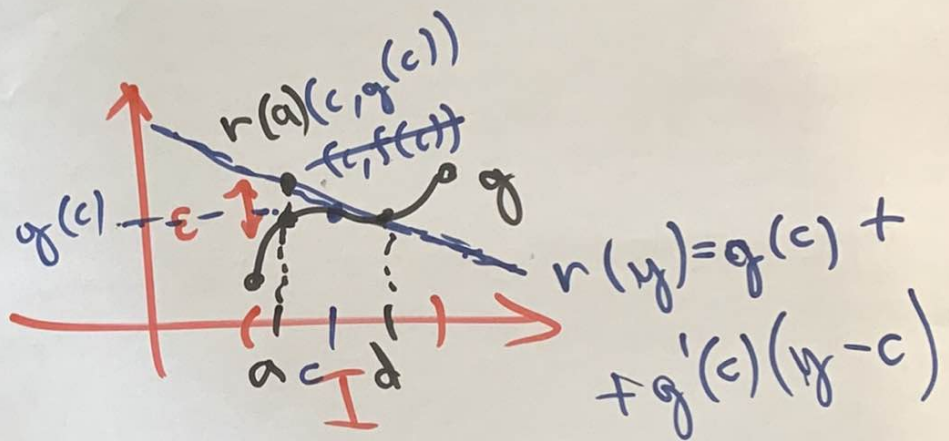 r(a)(c,g(c))
(c,f(c))
g
g(c)
ε
r(y)=g(c)+
+g'(c)(y-c)
( )
a c d
I